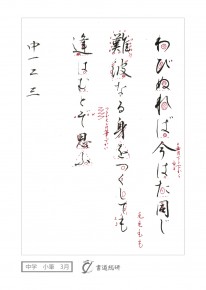 わびぬれば今はた同じ
難波なる身をつくしても
逢はむとぞ思ふ
中一二三
中学 小筆 3月
書道総研